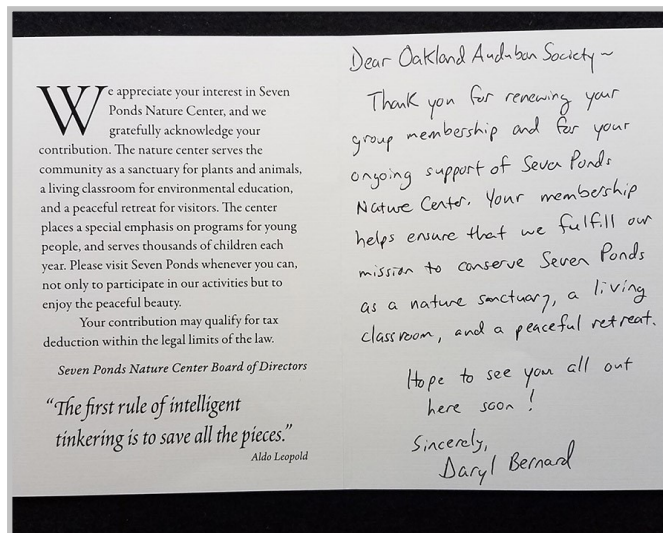 We appreciate your interest in Seven
Ponds Nature Center, and we
gratefully acknowledge your
contribution. The nature center serves the
community as a sanctuary for plants and animals,
a living classroom for environmental education,
and a peaceful retreat for visitors. The center
places a special emphasis on programs for young
people, and serves thousands of children each
year. Please visit Seven Ponds whenever you can,
not only to participate in our activities but to
enjoy the peaceful beauty.
Your contribution may qualify for tax
deduction within the legal limits of the law.
Seven Ponds Nature Center Board of Directors
“The first rule of intelligent
tinkering is to save all the pieces.”
Aldo Leopold
Dear Oakland Audubon Society ~
Thank you for renewing your
group membership and for your
ongoing support of Seven Ponds
Nature Center. Your membership
helps ensure that we fulfill our
mission to conserve Seven Ponds
as a nature sanctuary, a living
classroom, and a peaceful retreat.
Hope to see you all out
here soon!
Sincerely,
Daryl Bernard